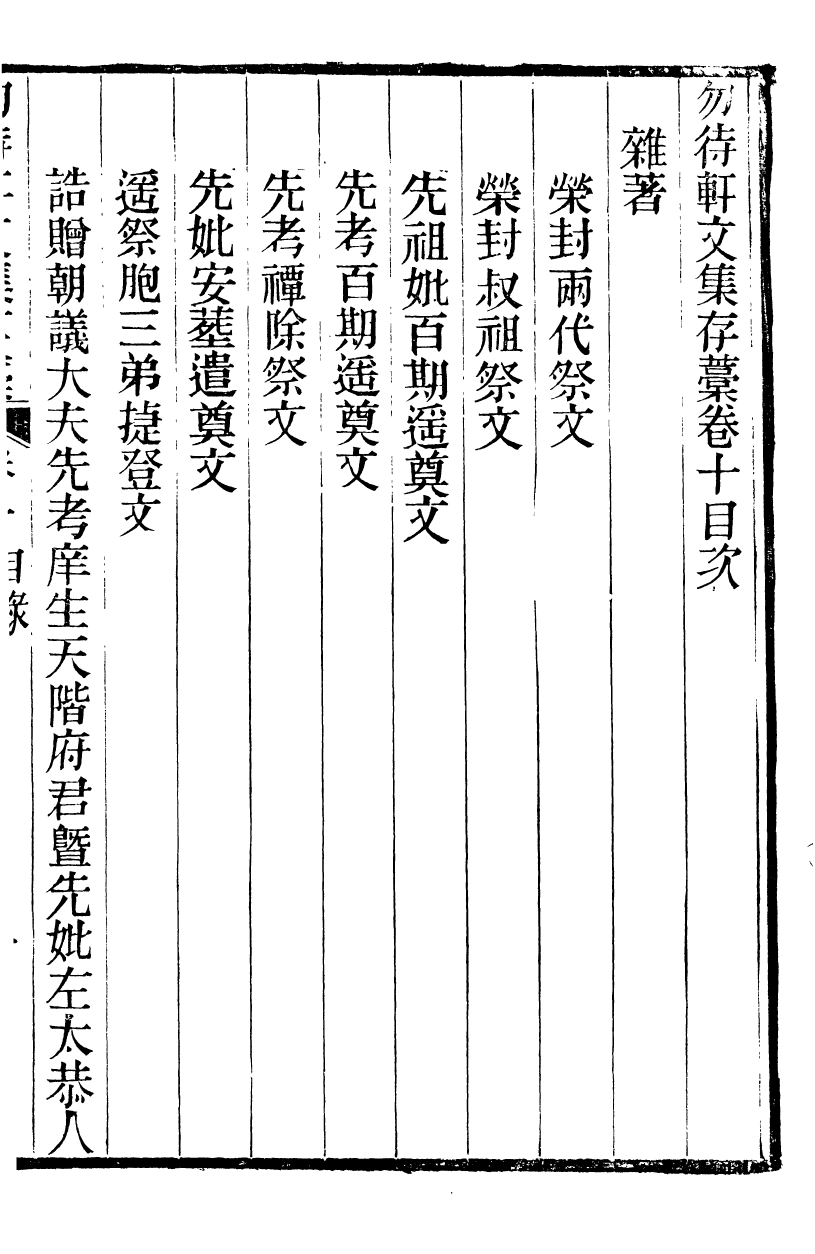 勿待軒文集存藁卷十目次
雜著
榮封兩代祭文
榮封叔祖祭文
先祖妣百期遥奠文
先考百期遥奠文
先考禫除祭文
先妣安塟遣奠文
遥祭胞三弟捷登文
誥贈朝議大夫先考庠生天階府君曁先妣左太恭人
目錄